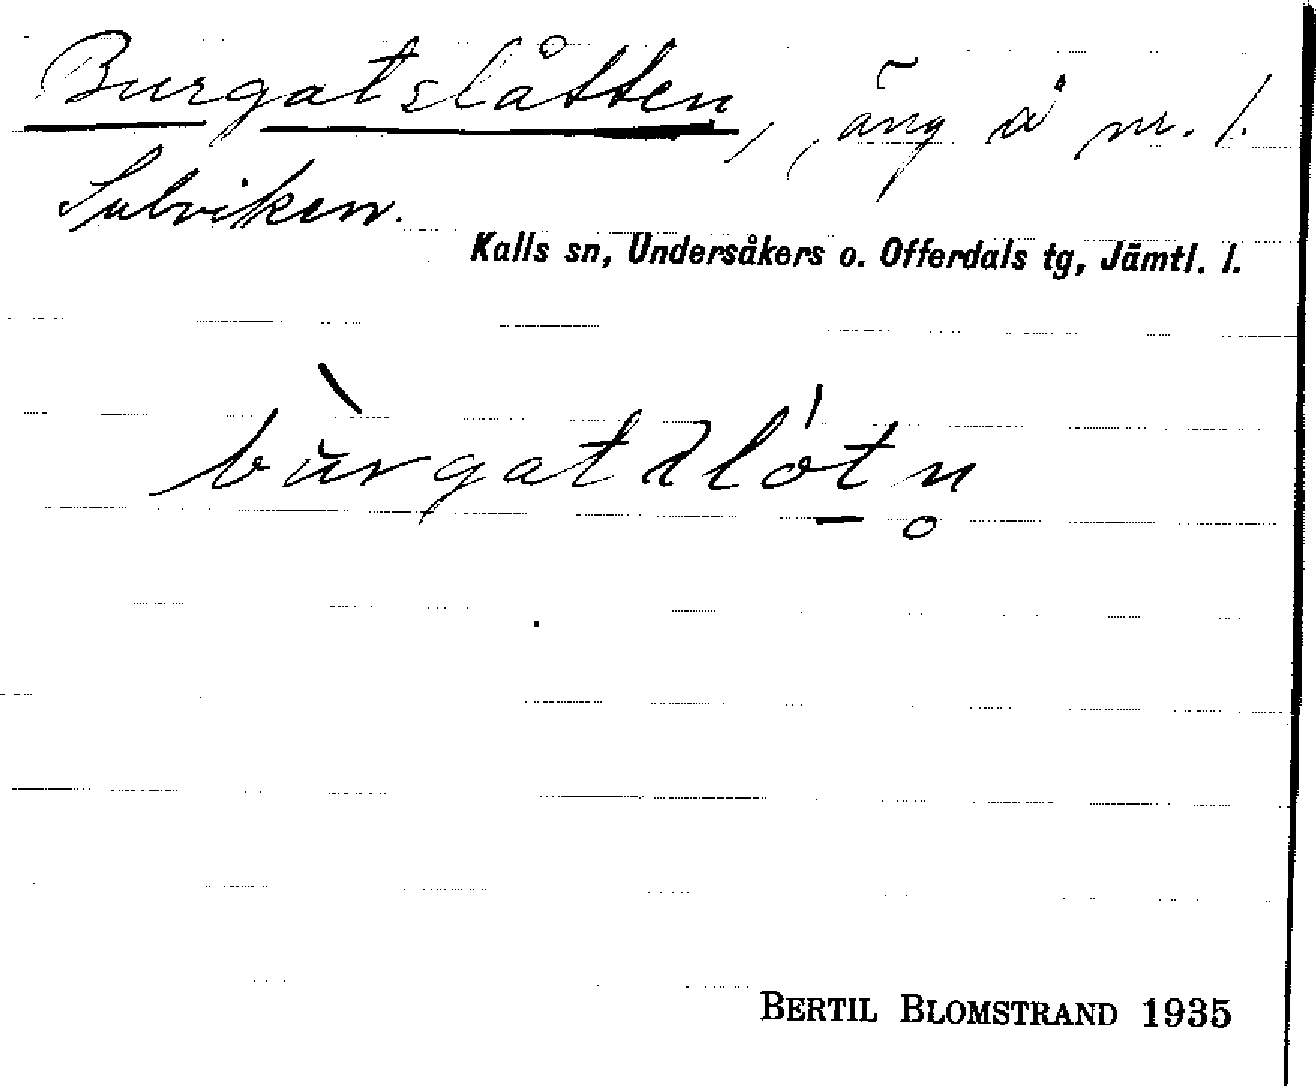 Burgatslåtten, äng å nr. 1.
Sulviken.
Kalls sn, Undersåkers o. Offerdals tg, Jämtl. l.
BERTIL BLOMSTRAND 1935